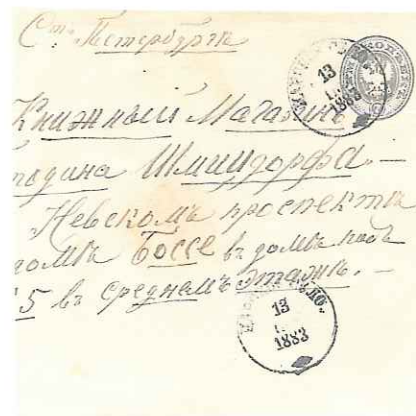 Ст. Петербургъ
Книжный Магазинъ
господина Шмицдорфа. —
Невскомъ проспектѣ
домѣ Боссе въ домѣ подъ
5 въ среднемъ этажѣ. —
13
1883
13
1883